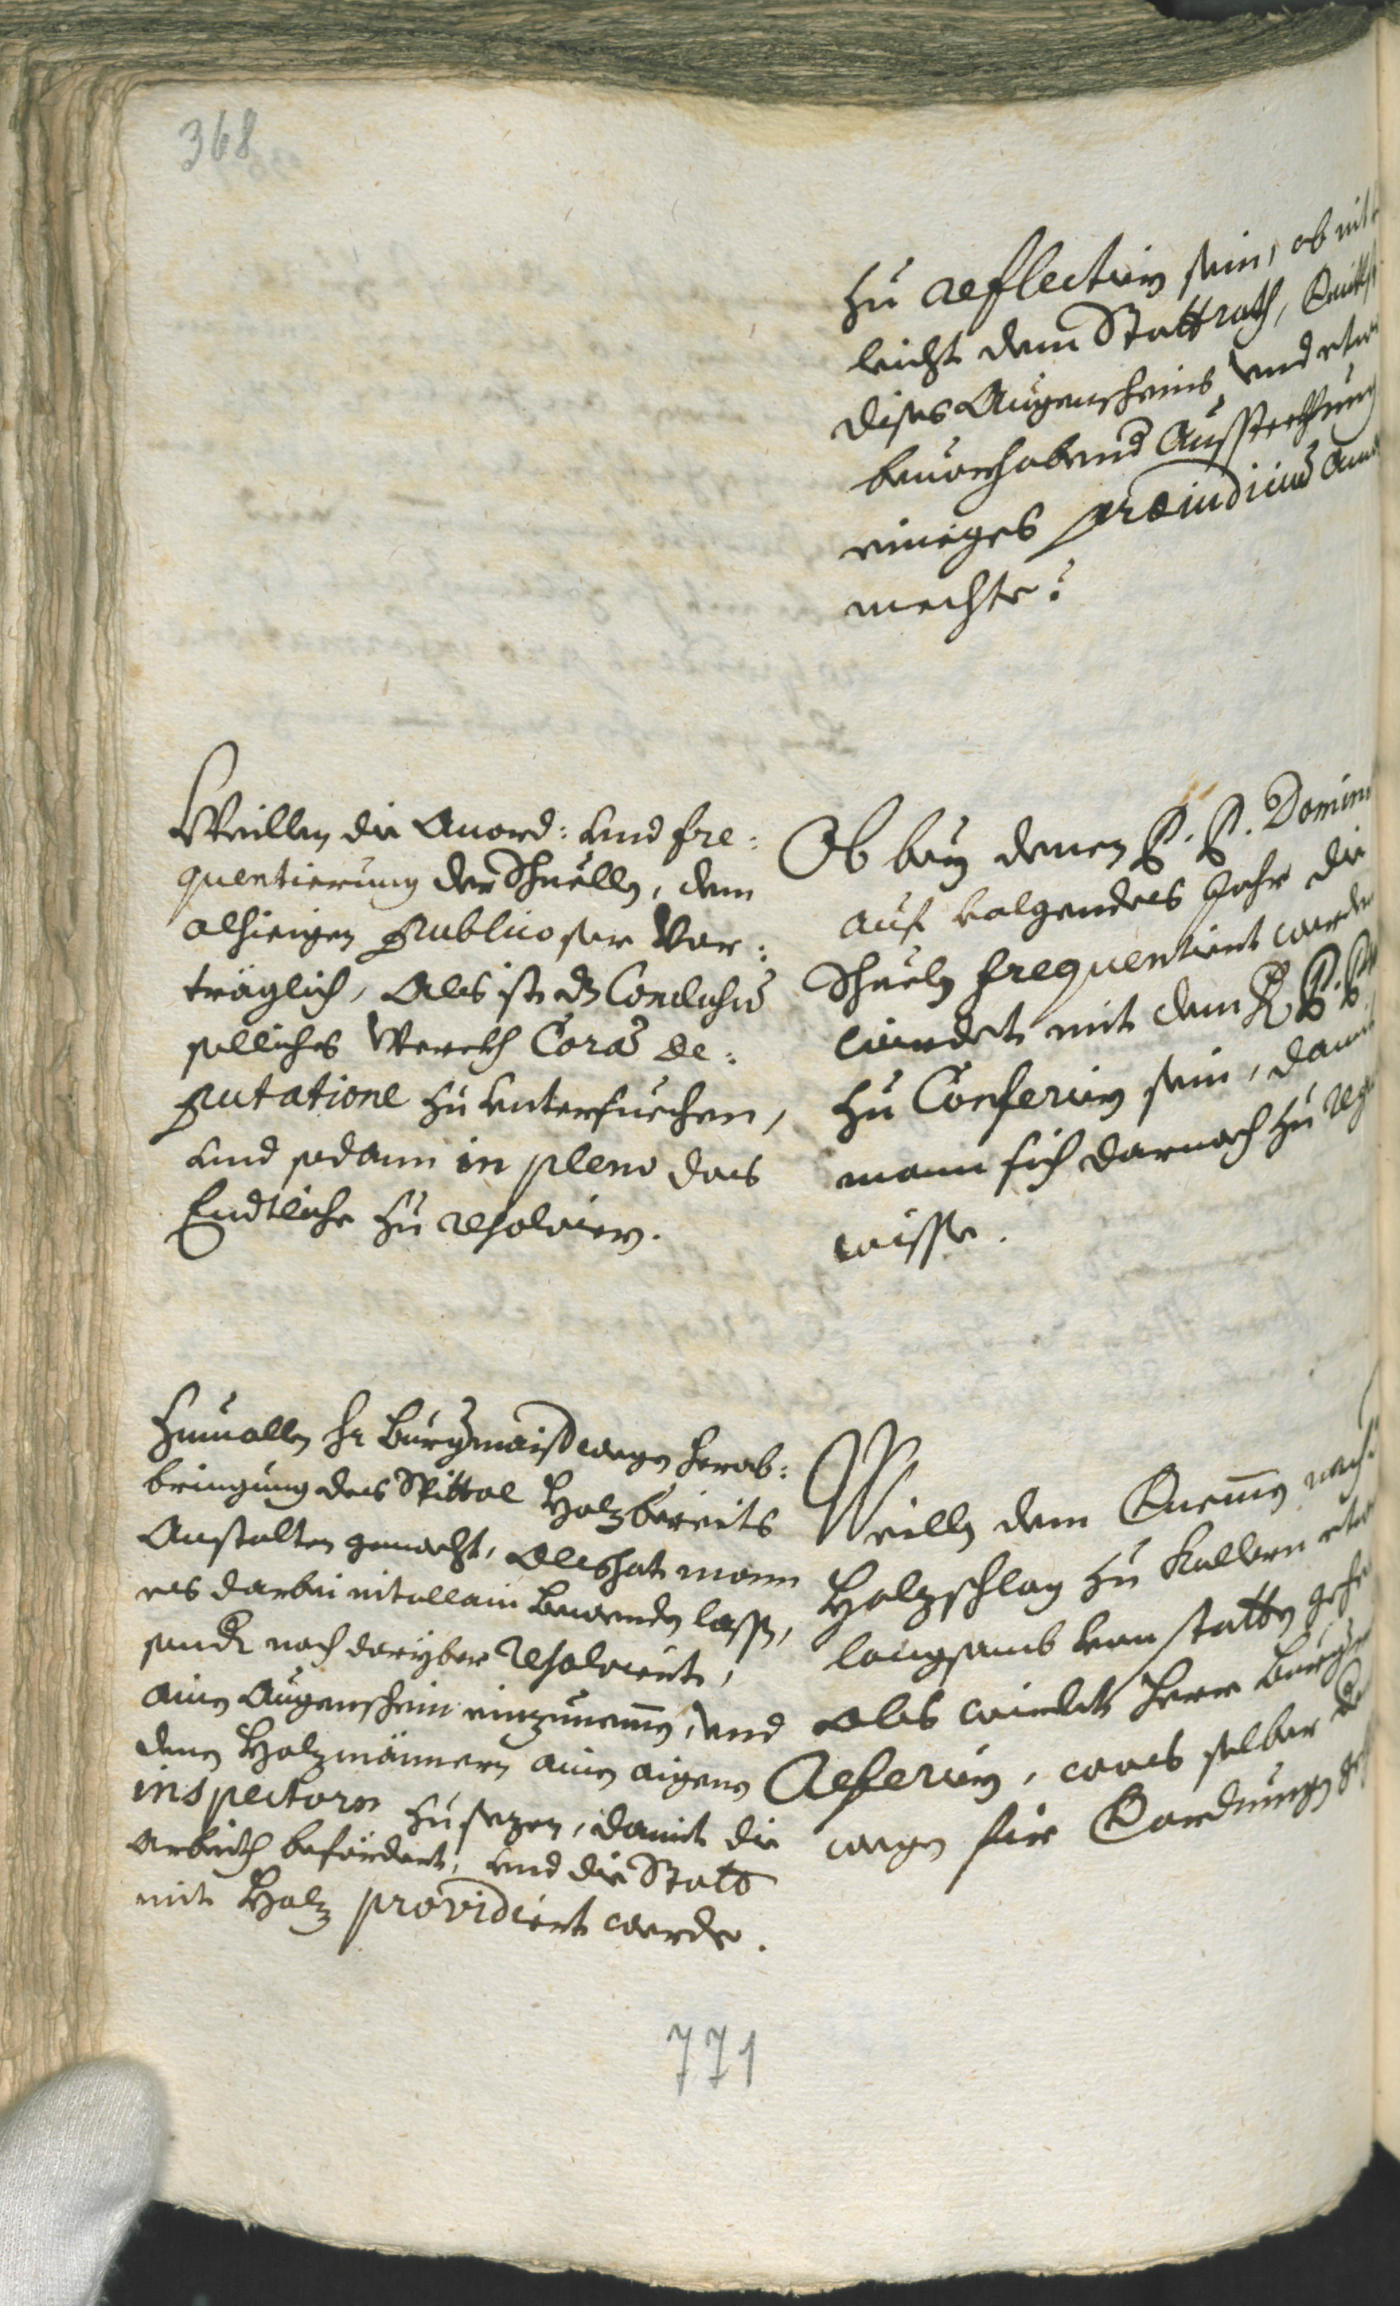 368
zu reflectirn sein, ob nit
leicht dem Stattrath,
dises Augenscheins, vnd etwo
beuorhabend Ausstekhung
einiges præiudiciũ
mechte?
Weillen die Anord: vnd fre:
quentierung der Schuelln, dem
alhieigen Publico ser Vor:
träglich, Als ist dz Conclusũ
solliches Werckh Corã de:
putatione zu vnterfuechen,
vnd sodann in pleno das
Endtliche zu resolvirn.
Ob bey denen P. P. Domini
auf volgendes Jahr die
Schueln frequentiert werden
wierdet mit dem R. P.
zu Conferirn sein, damit
mann sich darnach zu
wisse.
Zumallen hr Burgermaister wegen herab:
bringung des Spittal Holz bereits
Anstalten gemacht, Als hat mann
es darbei nit allein bewenden lassen,
sonder noch darüber Resolviert,
ainen Augenschein einzunemmen, vnd
denen Holzmännern ainen aigenen
inspectorn zu sezen, damit die
Arbeith befördert, vnd die Statt
mit Holz providiert werde.
Weilln dem nach
Holzschlag zu etwas
langsamb von statten
Als wierdet Herr Burger
Referirn, was selber
wegen für
771